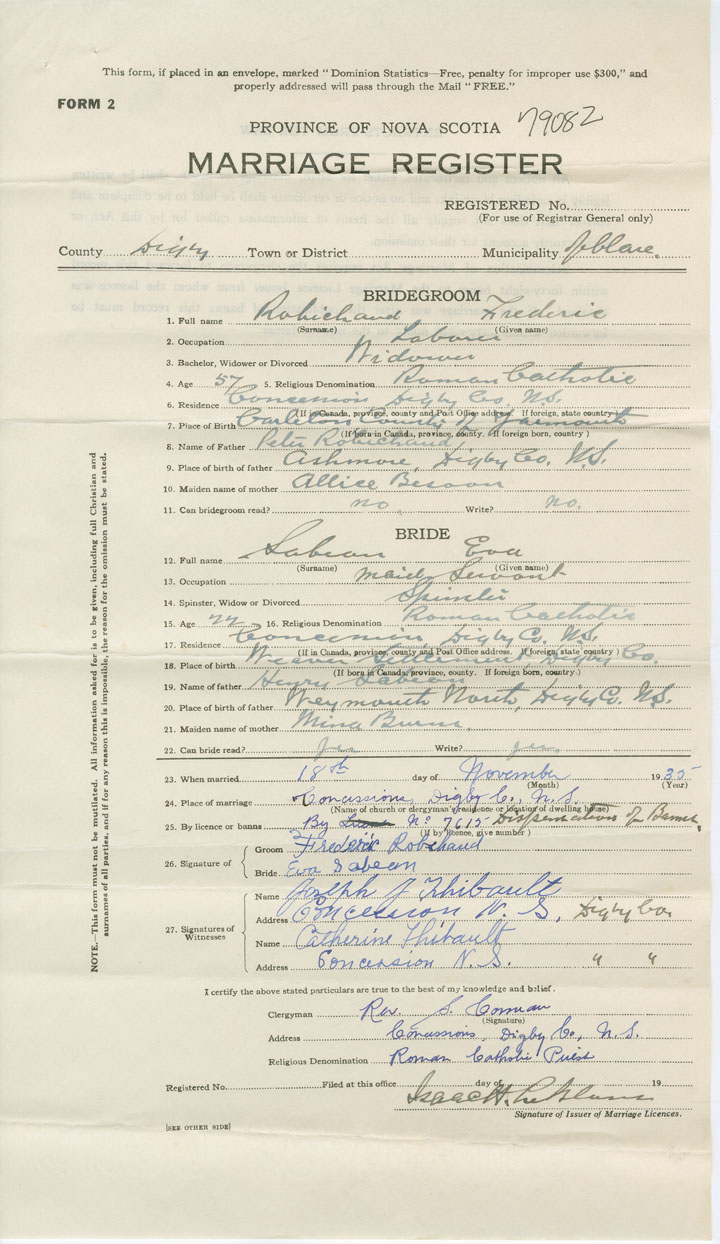 This form, if placed in an envelope, marked "Dominion Statistics—Free, penalty for improper use $300," and
properly addressed will pass through the Mail "FREE."
FORM 2
PROVINCE OF NOVA SCOTIA 79082
MARRIAGE REGISTER
REGISTERED No.
(For use of Registrar General only)
County Digby Town or District Municipality of Clare.
BRIDEGROOM
1. Full name Robichaud Frederic
(Surname) (Given name)
2. Occupation Laborer
3. Bachelor, Widower or Divorced Widower
4. Age 57 5. Religious Denomination Roman Catholic
6. Residence Concession Digby Co. N.S.
(If in Canada, province, county and Post Office address. If foreign, state country)
7. Place of Birth Carleton County of Yarmouth
(If born in Canada, province, county. If foreign born, country)
8. Name of Father Peter Robichaud
9. Place of birth of father Ashmore, Digby Co. N.S.
10. Maiden name of mother Allice
11. Can bridegroom read? no. Write? no.
BRIDE
12. Full name Sabean Eva
(Surname) (Given name)
13. Occupation maid Servant
14. Spinster, Widow or Divorced Spinster
15. Age 22 16. Religious Denomination Roman Catholic
17. Residence Concession Digby Co. N.S.
(If in Canada, province, county and Post Office address. If foreign, state country)
18. Place of birth Weaver Settlement Digby Co.
(If born in Canada, province, county. If foreign born, country.)
19. Name of father Henry Sabean
20. Place of birth of father Weymouth North, Digby Co. N.S.
21. Maiden name of mother Mina
22. Can bride read? yes Write? yes.
23. When married 18th day of November 1935
(Month) (Year)
24. Place of marriage Concessions, Digby Co., N.S.
(Name of church or clergyman's residence or location of dwelling house)
25. By licence or banns By No 7615 Dispensation of Banns,
(If by licence, give number)
26. Signature of
Groom Frederic Robichaud
Bride Eva Sabean
27. Signatures of Witnesses
Name Joseph J Thibault
Address Concession N. S, Digby Co.
Name Catherine Thibault
Address Concession N. S. " "
I certify the above stated particulars are true to the best of my knowledge and belief.
Clergyman Rev. S. Comeau
(Signature)
Address Concessions, Digby Co, N. S.
Religious Denomination Roman Catholic Priest
Registered No. Filed at this office day of 19
Isaac H. LeBlanc
Signature of Issuer of Marriage Licences.
[SEE OTHER SIDE]
NOTE.—This form must not be mutilated. All information asked for is to be given, including full Christian and
surnames of all parties, and if for any reason this is impossible, the reason for the omission must be stated.